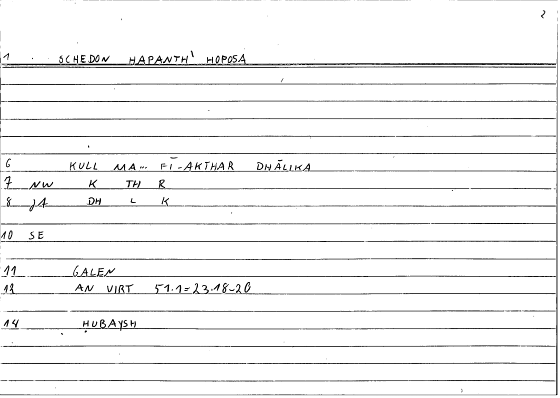 2
1 SCHEDON HAPANTH' HOPOSA
6 KULL MA... FĪ-AKTHAR DHĀLIKA
7 NW K TH R
8 JA DH L K
10 SE
11 GALEN
12 AN VIRT 51.1=23.18-20
14 ḤUBAYSH